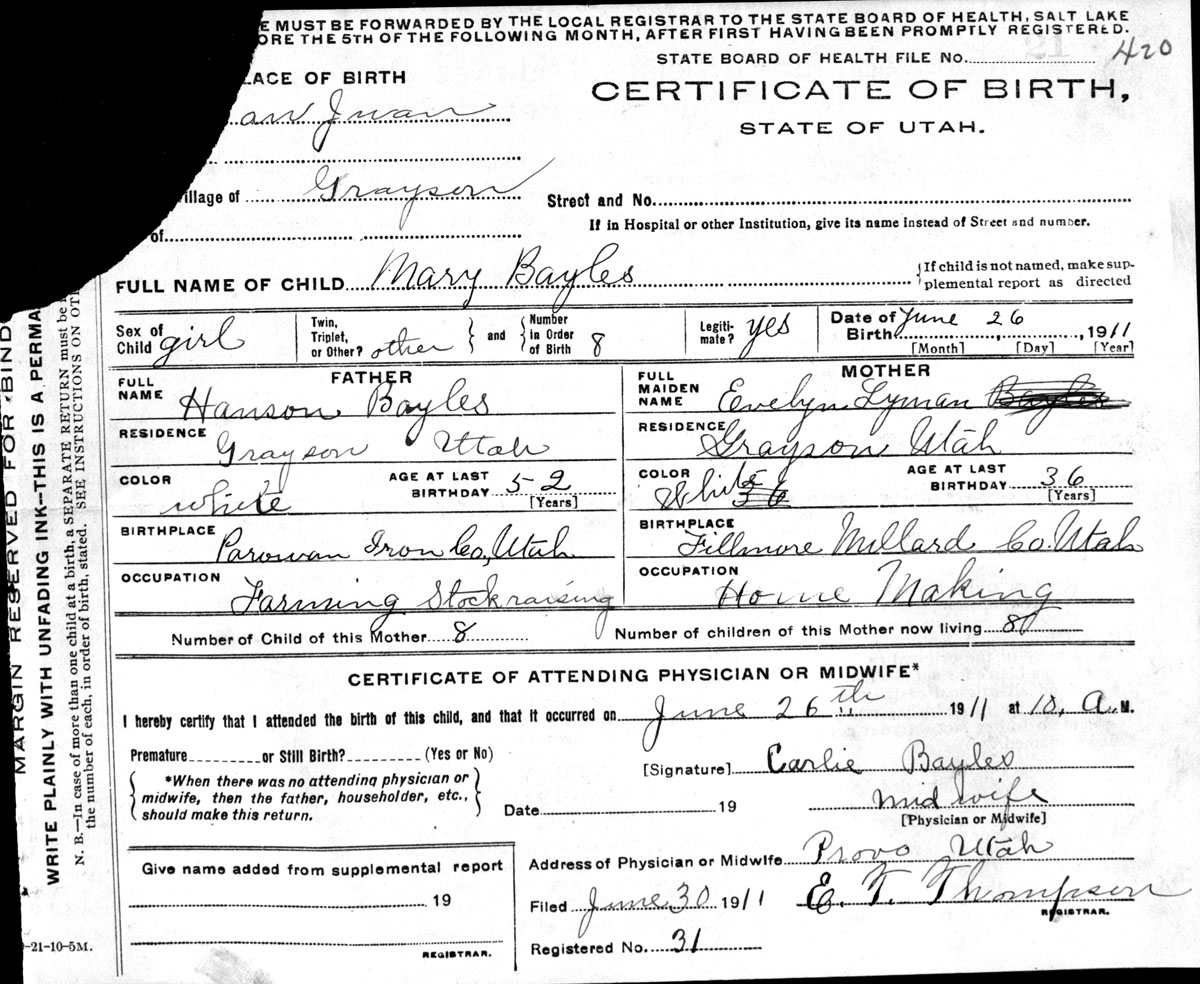 E MUST BE FORWARDED BY THE LOCAL REGISTRAR TO THE STATE BOARD OF HEALTH, SALT LAKE
ORE THE 5TH OF THE FOLLOWING MONTH, AFTER FIRST HAVING BEEN PROMPTLY REGISTERED.
STATE BOARD OF HEALTH FILE No. 420
LACE OF BIRTH
CERTIFICATE OF BIRTH,
an Juan
STATE OF UTAH.
illage of Grayson
Street and No.
of
If in Hospital or other Institution, give its name instead of Street and number.
FULL NAME OF CHILD Mary Bayles {If child is not named, make sup-
plemental report as directed
Sex of Child girl Twin, Triplet, or Other? other } and { Number in Order of Birth 8 Legiti-mate? yes Date of Birth June 26, 1911
[Month] [Day] [Year]
FATHER MOTHER
FULL NAME Hanson Bayles FULL MAIDEN NAME Evelyn Lyman Bayles
RESIDENCE Grayson Utah RESIDENCE Grayson Utah
COLOR white AGE AT LAST BIRTHDAY 52 [Years] COLOR White 36 AGE AT LAST BIRTHDAY 36 [Years]
BIRTHPLACE Parowan Iron Co, Utah BIRTHPLACE Fillmore Millard Co. Utah
OCCUPATION Farming Stockraising OCCUPATION Home Making
Number of Child of this Mother 8 Number of children of this Mother now living 8
CERTIFICATE OF ATTENDING PHYSICIAN OR MIDWIFE*
I hereby certify that I attended the birth of this child, and that it occurred on June 26th 1911 at 10, A.M.
Premature or Still Birth? (Yes or No)
[Signature] Carlie Bayles
{*When there was no attending physician or
midwife, then the father, householder, etc.,
should make this return.}
Date 19 midwife
[Physician or Midwife]
Give name added from supplemental report
19
REGISTRAR.
Address of Physician or Midwife Provo Utah
Filed June 30 1911 E. T. Thompson
REGISTRAR.
Registered No. 31
-21-10-5M.
MARGIN RESERVED FOR BIND
WRITE PLAINLY WITH UNFADING INK—THIS IS A PERMA
N. B.—In case of more than one child at a birth, a SEPARATE RETURN must be
the number of each, in order of birth, stated. SEE INSTRUCTIONS ON OT